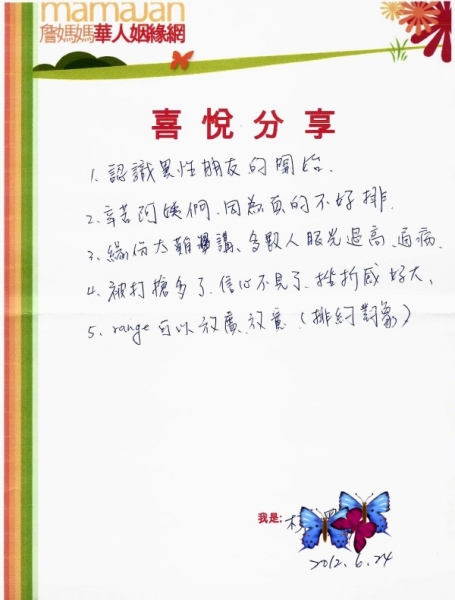 mamaJan
詹媽媽華人姻緣網
喜悅分享
1. 認識異性朋友的開始.
2. 辛苦阿姨們,因為真的不好排.
3. 緣份大 講、多數人眼光過高、通病.
4. 被打搶多了、信心不見了、挫折感好大、
5. range可以放廣、放意 (排約對象)
我是:
2012.6.24